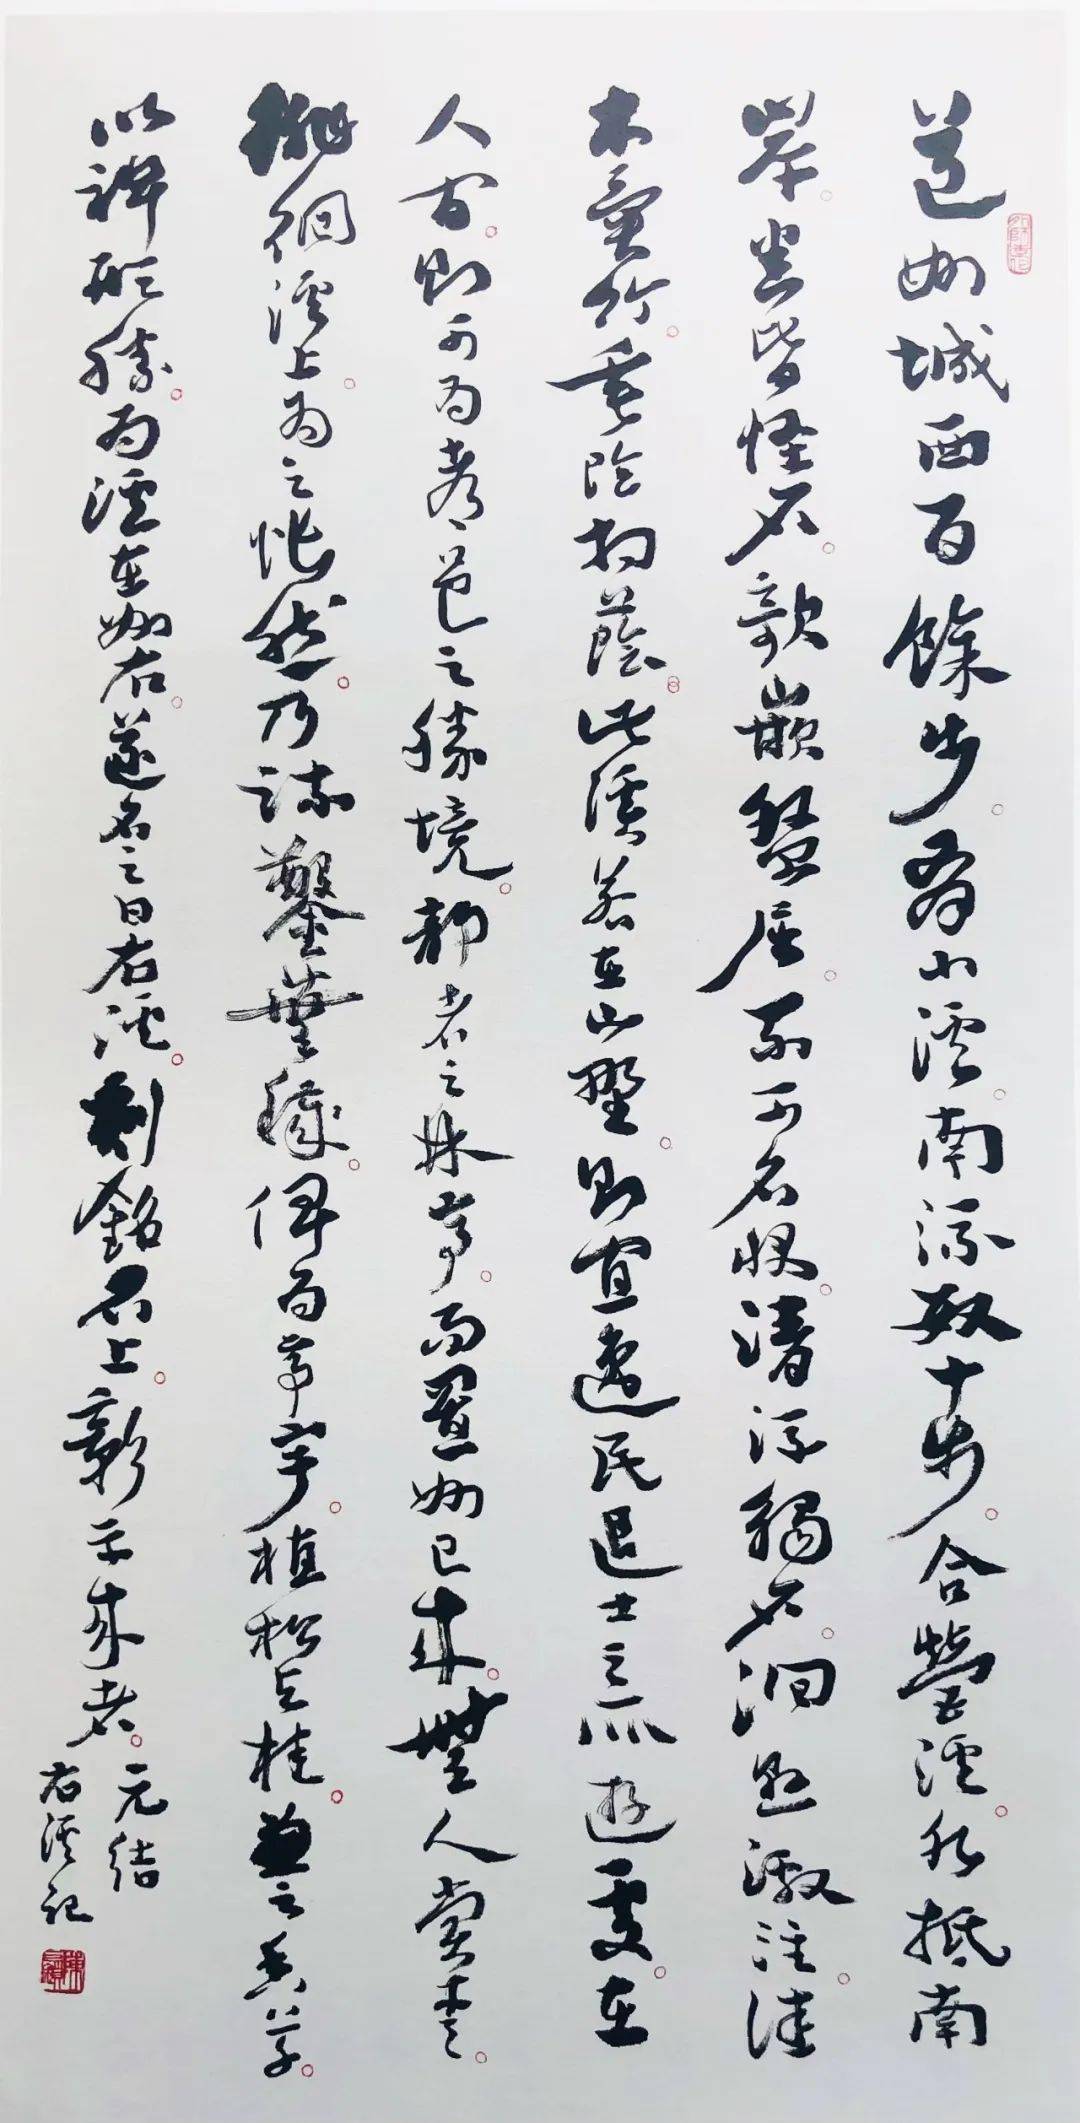 道州城西百餘步。有小溪。南流數十步。合營溪。水抵南
岸。悉皆怪石。欹嵌盤屈。不可名狀。清流觸石。洄懸激注。佳
木異竹。垂陰相蔭。此溪若在山野。則宜逸民退士之所遊處。在
人間。則可為都邑之勝境。靜者之林亭。而置州已來。無人賞愛。
徘徊溪上。為之悵然。乃疏鑿蕪穢。俾為亭宇。植松與桂。兼之香草。
以裨形勝。為溪在州右。遂名之曰右溪。刻銘石上。彰示來者。
元結
右溪記